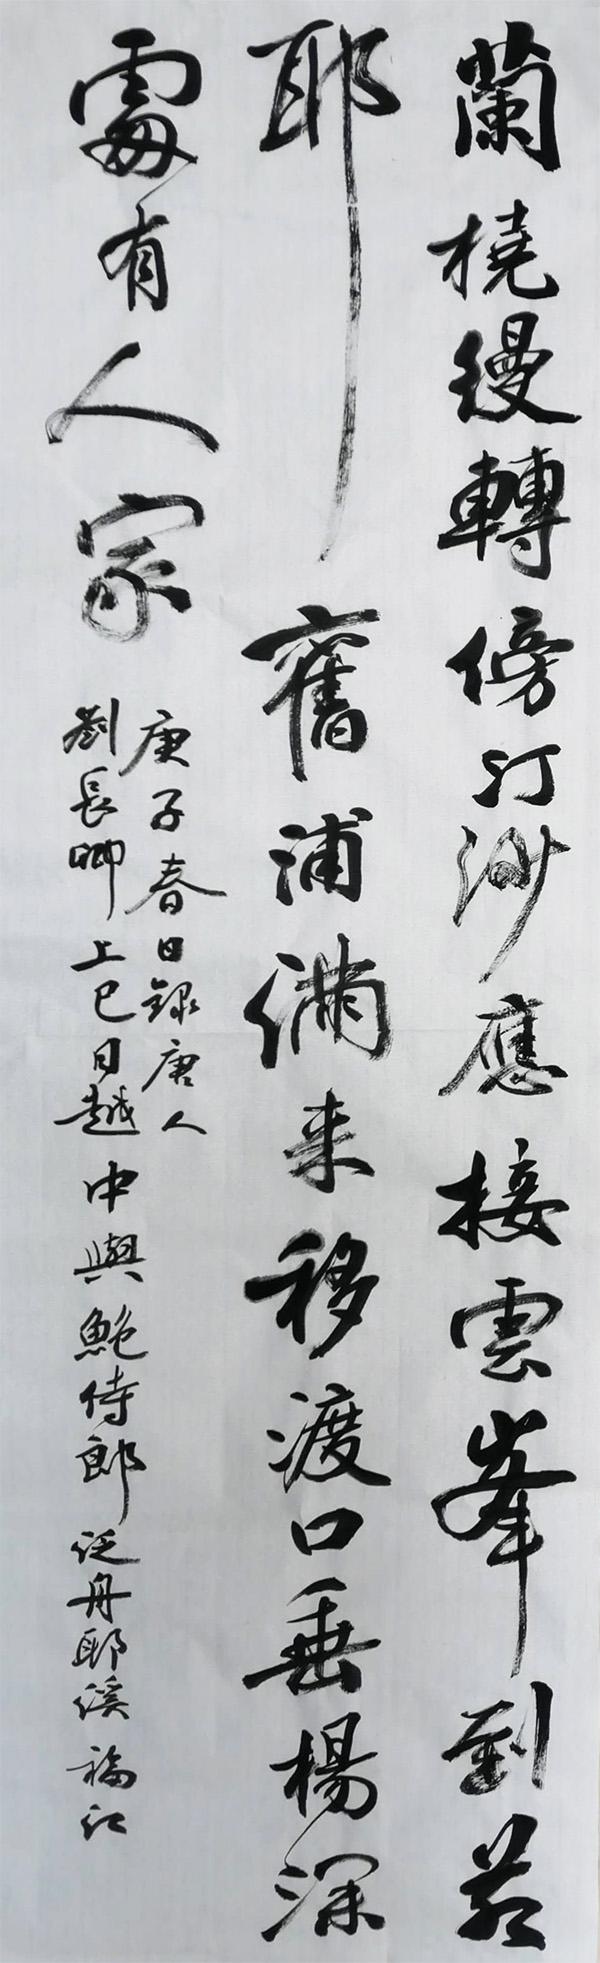 蘭橈縵轉傍汀沙應接雲峯到若
耶舊浦滿来移渡口垂楊深
處有人家
庚子春日録唐人
劉長卿上巳日越中與鮑侍郎泛舟耶溪福江